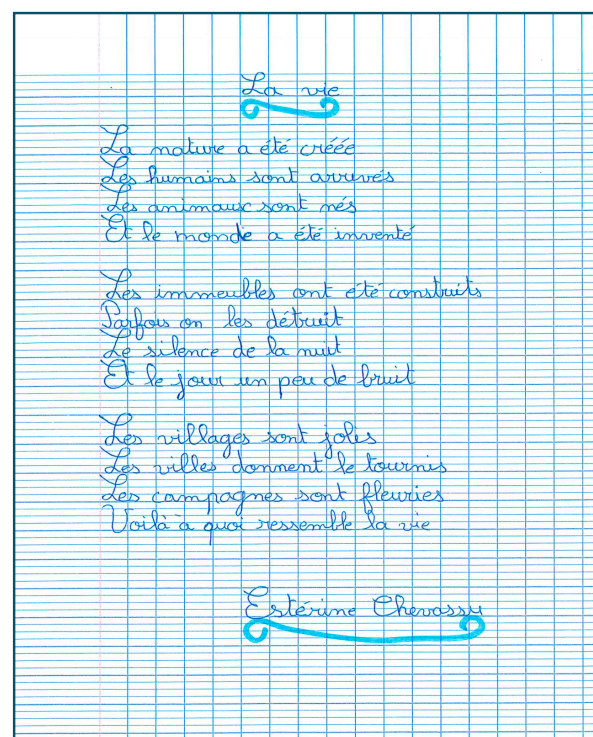 La vie
La nature a été créée
Les humains sont arrivés
Les animaux sont nés
Et le monde a été inventé
Les immeubles ont été construits
Parfois on les détruit
Le silence de la nuit
Et le jour un peu de bruit
Les villages sont jolis
Les villes donnent le tournis
Les campagnes sont fleuries
Voilà à quoi ressemble la vie
Estérine Chevassu